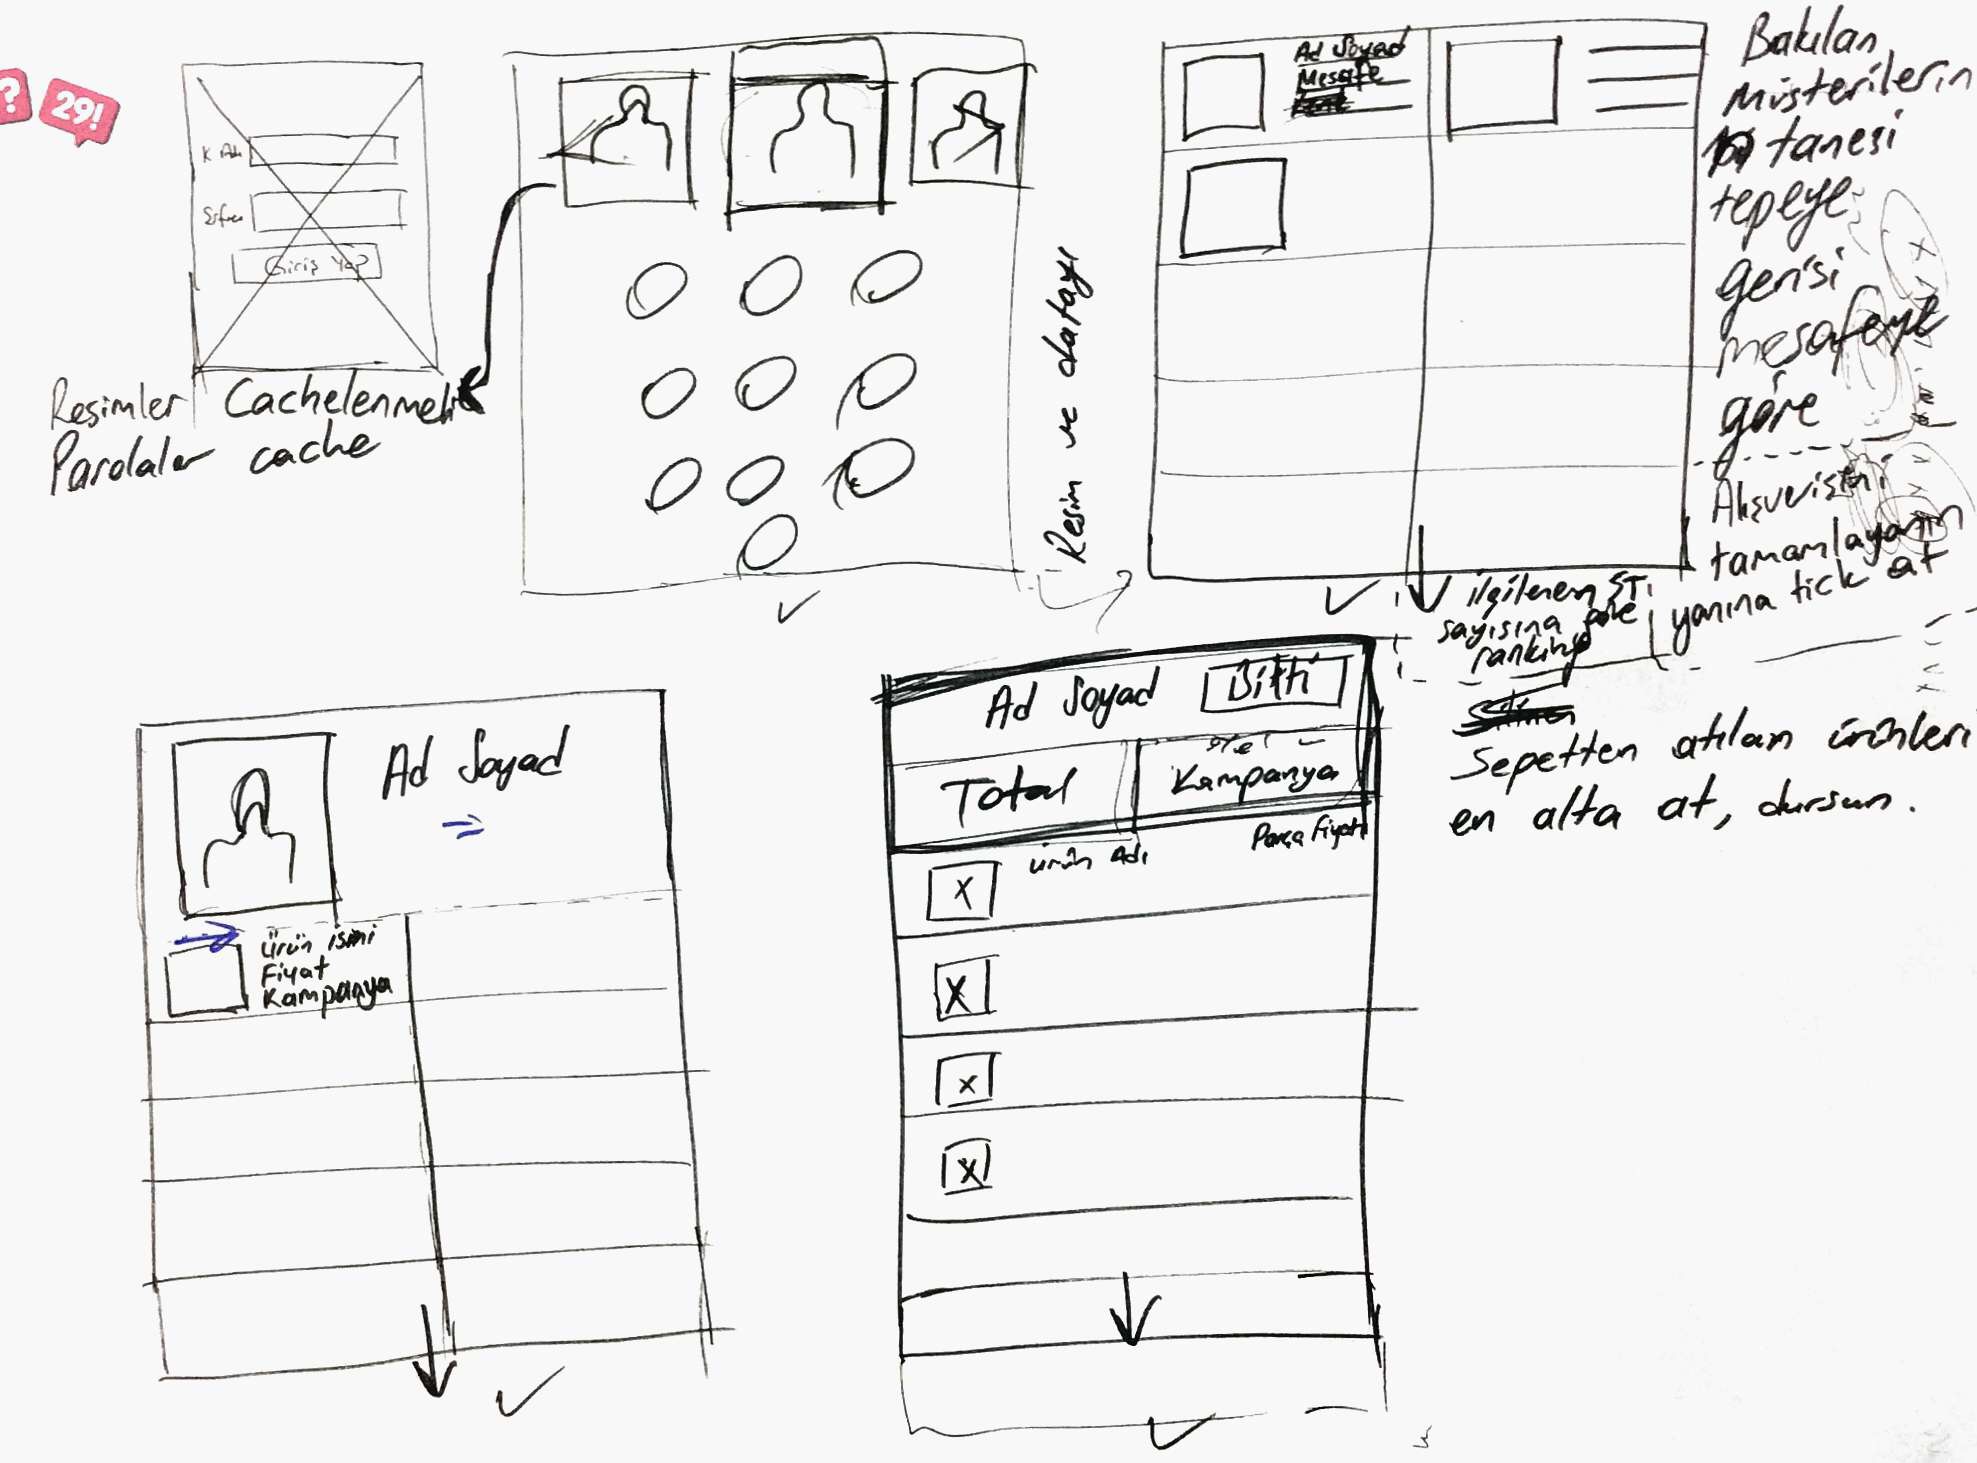 ?
29!
K Adı
Şifre
Giriş Yap
Resimler Cachelenmeli
Parolalar cache
Resim ve datayı
Ad Soyad
Mesafe
Bakılan
Müşterilerin
tanesi
tepeye
gerisi
mesafeye
göre
Alışverişini
tamamlayanın
yanına tick at
ilgilenen
sayısına göre
ranking
Sepetten atılan ürünleri
en alta at, dursun.
Ad Soyad
Ürün ismi
Fiyat
Kampanya
Ad Soyad
Bitti
Total
Kampanya
Ürün Adı
Parça Fiyatı
X
X
X
X